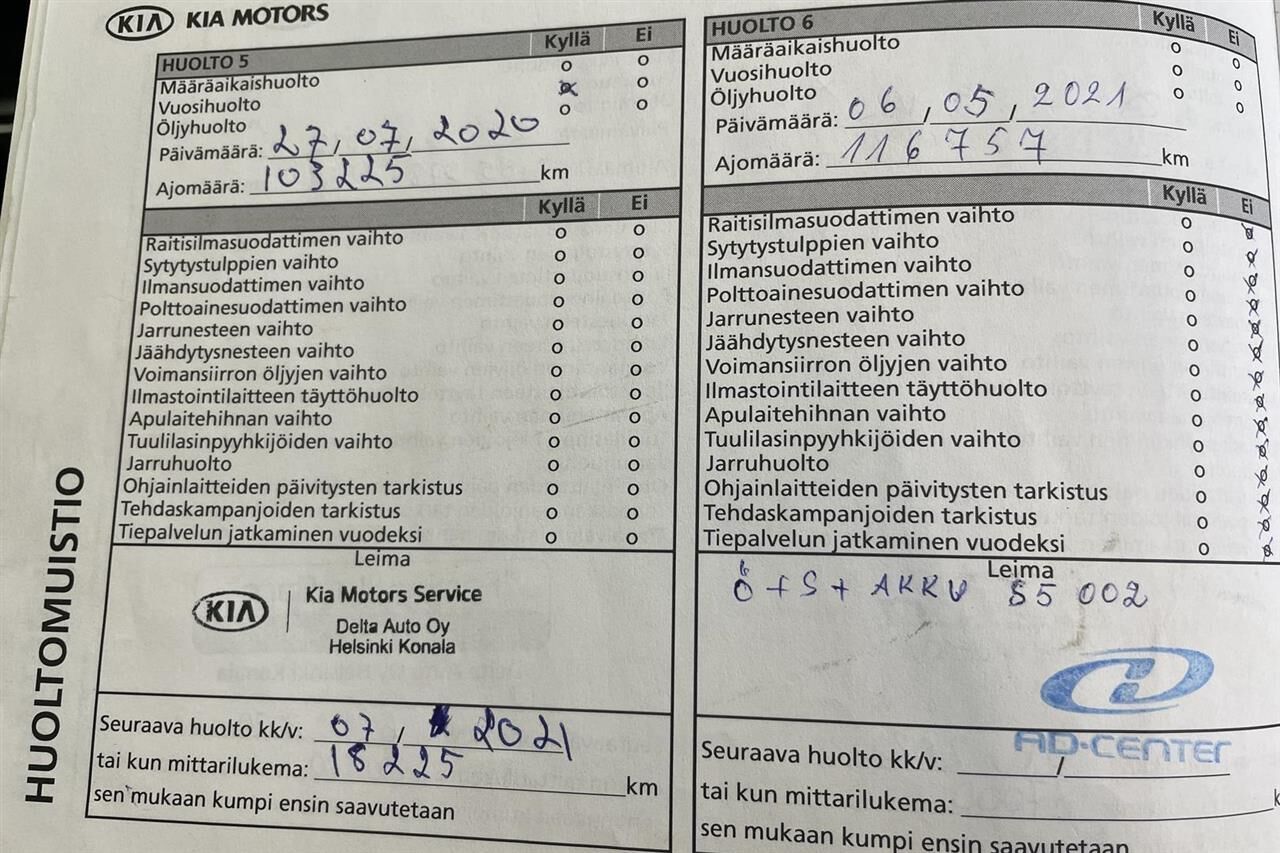 KIA KIA MOTORS
HUOLTOMUISTIO
HUOLTO 5 Kyllä Ei
Määräaikaishuolto o o
Vuosihuolto x o
Öljyhuolto o o
Päivämäärä: 27, 07, 2020
Ajomäärä: 103225 km
Kyllä Ei
Raitisilmasuodattimen vaihto o o
Sytytystulppien vaihto o o
Ilmansuodattimen vaihto o o
Polttoainesuodattimen vaihto o o
Jarrunesteen vaihto o o
Jäähdytysnesteen vaihto o o
Voimansiirron öljyjen vaihto o o
Ilmastointilaitteen täyttöhuolto o o
Apulaitehihnan vaihto o o
Tuulilasinpyyhkijöiden vaihto o o
Jarruhuolto o o
Ohjainlaitteiden päivitysten tarkistus o o
Tehdaskampanjoiden tarkistus o o
Tiepalvelun jatkaminen vuodeksi o o
Leima
KIA Kia Motors Service
Delta Auto Oy
Helsinki Konala
Seuraava huolto kk/v: 07, 2021
tai kun mittarilukema: 18225 km
sen mukaan kumpi ensin saavutetaan
HUOLTO 6 Kyllä Ei
Määräaikaishuolto o o
Vuosihuolto o o
Öljyhuolto o o
Päivämäärä: 06, 05, 2021
Ajomäärä: 116757 km
Kyllä Ei
Raitisilmasuodattimen vaihto o x
Sytytystulppien vaihto o x
Ilmansuodattimen vaihto o x
Polttoainesuodattimen vaihto o x
Jarrunesteen vaihto o x
Jäähdytysnesteen vaihto o x
Voimansiirron öljyjen vaihto o x
Ilmastointilaitteen täyttöhuolto o x
Apulaitehihnan vaihto o x
Tuulilasinpyyhkijöiden vaihto o x
Jarruhuolto o x
Ohjainlaitteiden päivitysten tarkistus o x
Tehdaskampanjoiden tarkistus o x
Tiepalvelun jatkaminen vuodeksi o x
Leima
Ö + S + AKKU S5 002
AD-CENTER
Seuraava huolto kk/v: /
tai kun mittarilukema: k
sen mukaan kumpi ensin saavutetaan